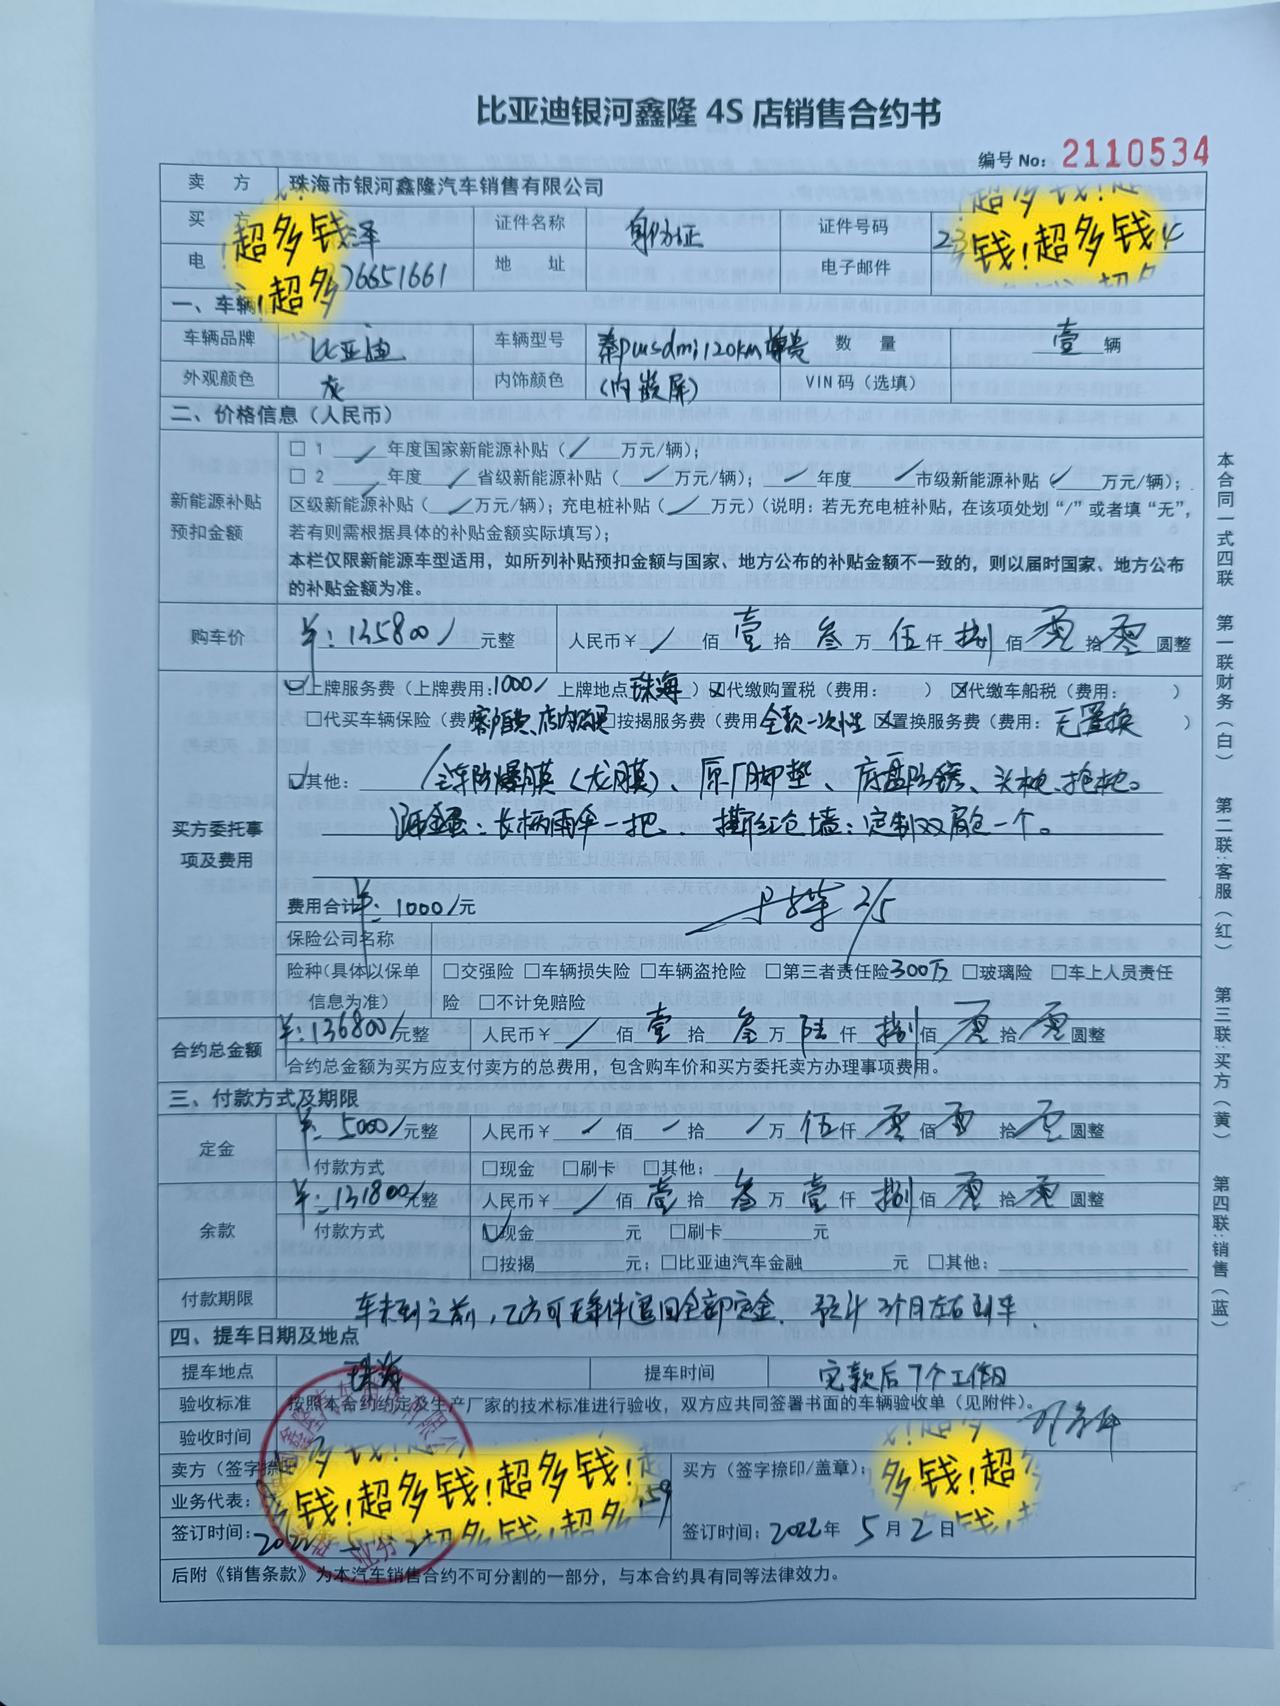 比亚迪银河鑫隆 4S 店销售合约书
编号 No: 2110534
卖 方 珠海市银河鑫隆汽车销售有限公司
买 方 泽 证件名称 身份证 证件号码
超多钱 钱!超多钱
电 76651661 地 址 电子邮件
超多
一、车辆
车辆品牌 比亚迪 车辆型号 秦plusdmi120km尊贵 数 量 壹 辆
外观颜色 灰 内饰颜色 (内嵌屏) VIN 码(选填)
二、价格信息(人民币)
新能源补贴预扣金额
□ 1 / 年度国家新能源补贴( / 万元/辆);
□ 2 / 年度 / 省级新能源补贴( / 万元/辆); / 年度 / 市级新能源补贴( / 万元/辆);
区级新能源补贴( / 万元/辆);充电桩补贴( / 万元)(说明:若无充电桩补贴,在该项处划“/”或者填“无”,
若有则需根据具体的补贴金额实际填写);
本栏仅限新能源车型适用,如所列补贴预扣金额与国家、地方公布的补贴金额不一致的,则以届时国家、地方公布
的补贴金额为准。
购车价 ¥:135800/ 元整 人民币¥ / 佰 壹 拾 叁 万 伍 仟 捌 佰 零 拾 零 圆整
买方委托事项及费用
☑上牌服务费(上牌费用:1000/ 上牌地点 珠海 ) ☑代缴购置税(费用: ) ☑代缴车船税(费用: )
□代买车辆保险(费用 店内购买 □按揭服务费(费用 全款一次性 ☑置换服务费(费用: 无置换 )
☑其他: 全车防爆膜(龙膜)、原厂脚垫、底盘防锈、头枕、抱枕。
砸金蛋:长柄雨伞一把、撕红包墙:定制双肩包一个。
费用合计 ¥:1000/元 2/5
保险公司名称
险种(具体以保单 □交强险 □车辆损失险 □车辆盗抢险 □第三者责任险300万 □玻璃险 □车上人员责任
信息为准) 险 □不计免赔险
合约总金额 ¥:136800/元整 人民币¥ / 佰 壹 拾 叁 万 陆 仟 捌 佰 零 拾 零 圆整
合约总金额为买方应支付卖方的总费用,包含购车价和买方委托卖方办理事项费用。
三、付款方式及期限
定金 ¥:5000/元整 人民币¥ / 佰 / 拾 / 万 伍 仟 零 佰 零 拾 零 圆整
付款方式 □现金 □刷卡 □其他:
余款 ¥:131800/元整 人民币¥ / 佰 壹 拾 叁 万 壹 仟 捌 佰 零 拾 零 圆整
付款方式 ☑现金 元 □刷卡 元
□按揭 元; □比亚迪汽车金融 元 □其他:
付款期限 车未到之前,乙方可无条件退回全部定金。预计3个月左右到车
四、提车日期及地点
提车地点 珠海 提车时间 定款后7个工作日
验收标准 按照本合约约定及生产厂家的技术标准进行验收,双方应共同签署书面的车辆验收单(见附件)。
验收时间
卖方(签字捺印 买方(签字捺印/盖章):
钱!超多钱!超多钱! 多钱!超
业务代表:
签订时间:2022 签订时间:2022年 5 月 2 日
后附《销售条款》为本汽车销售合约不可分割的一部分,与本合约具有同等法律效力。
本合同一式四联 第一联财务(白) 第二联:客服(红) 第三联:买方(黄) 第四联:销售(蓝)